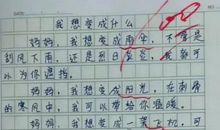 我想变成什么
妈妈，我想变成雨伞，不管是
刮风下雨，还是烈日炎炎，我都可
以为你遮挡。
妈妈，我想变成阳光，在刺骨
的寒风中，我可以带给你温暖。
妈妈，我想变成一架飞机，可